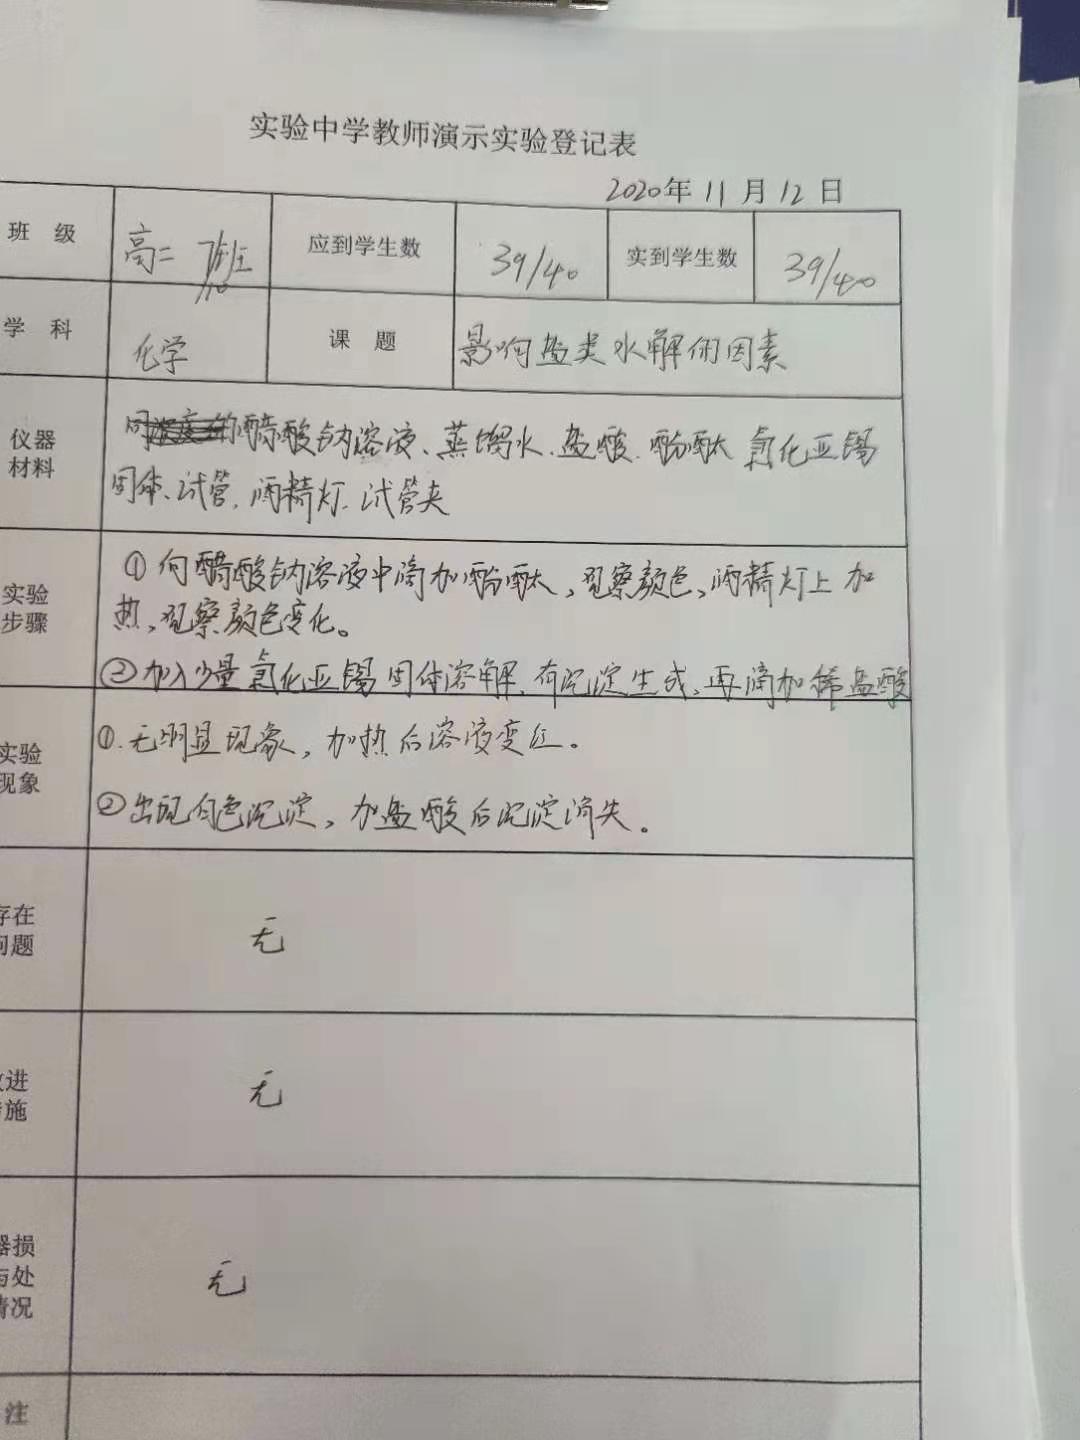 实验中学教师演示实验登记表
2020年 11 月 12 日
班 级 高二 7班/10 应到学生数 39/40 实到学生数 39/40
学 科 化学 课 题 影响盐类水解的因素
仪器
材料
醋酸钠溶液、蒸馏水、盐酸、酚酞 氯化亚锡
固体、试管、酒精灯、试管夹
实验
步骤
①向醋酸钠溶液中滴加酚酞,观察颜色,酒精灯上加
热,观察颜色变化。
②加入少量氯化亚锡固体溶解,有沉淀生成,再滴加稀盐酸
实验
现象
①.无明显现象,加热后溶液变红。
②出现白色沉淀,加盐酸后沉淀消失。
存在
问题
无
进
施
无
器损
与处
情况
无
注